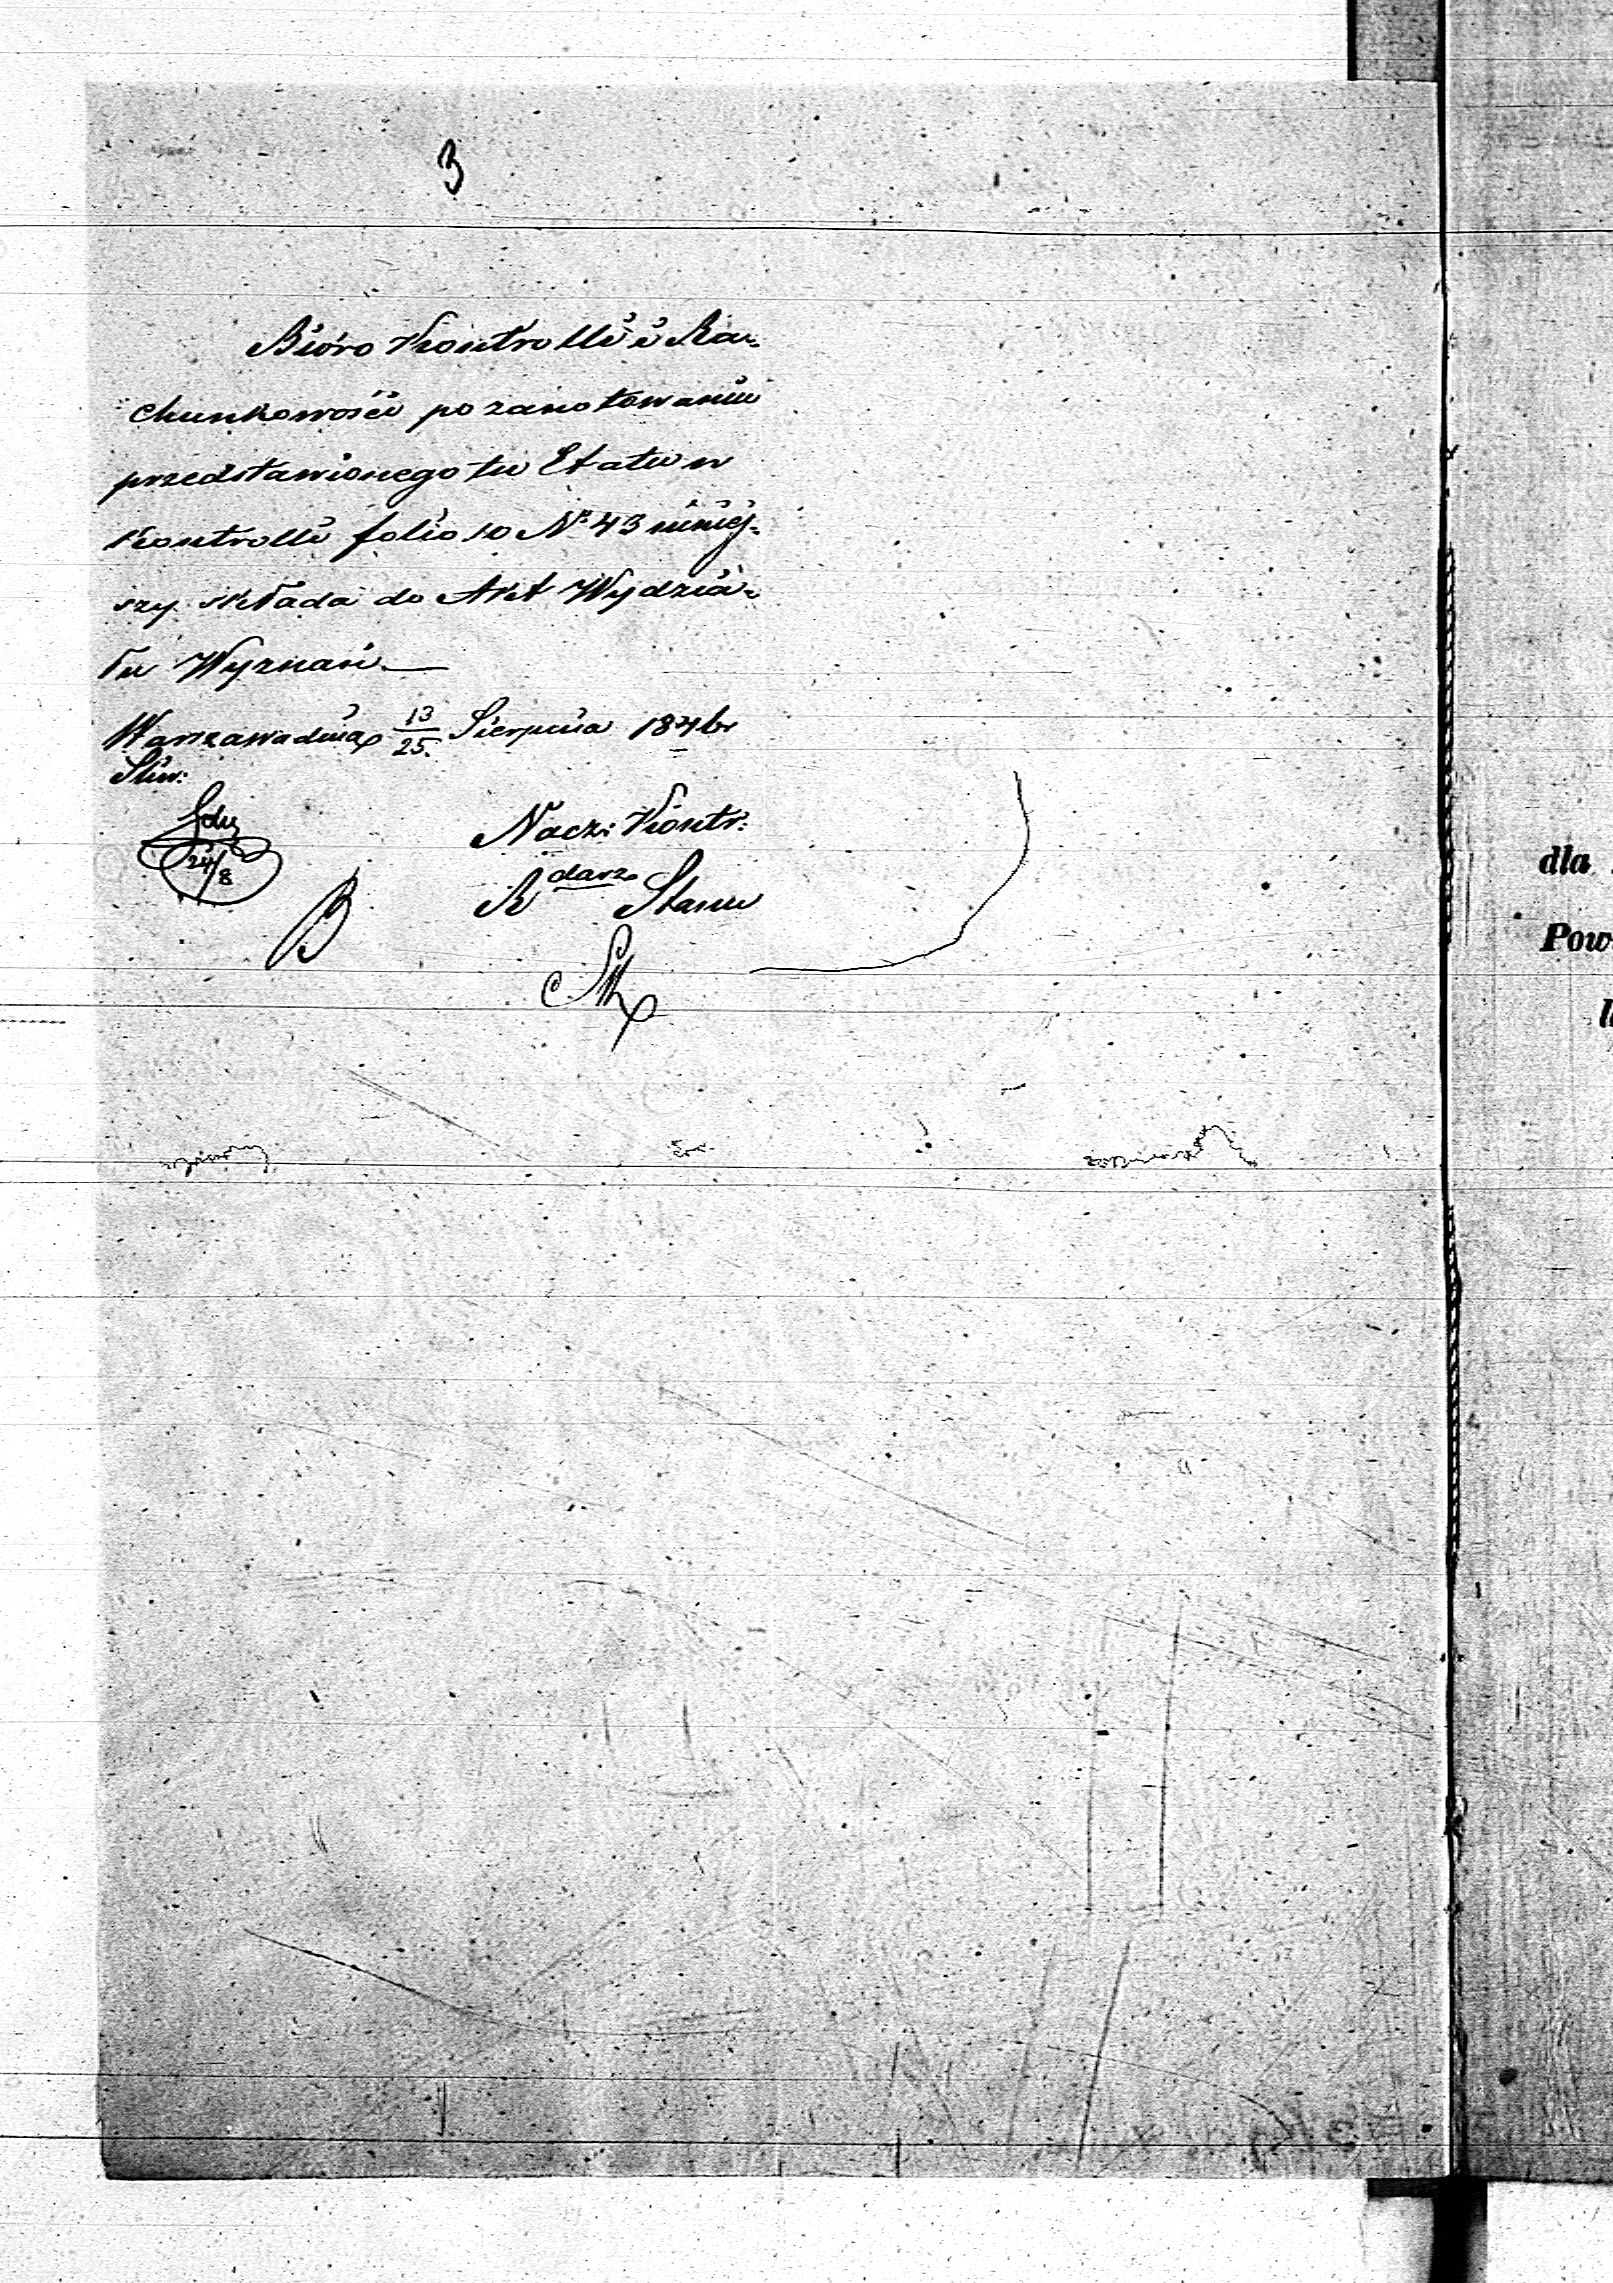 3
Bióro Kontrolli i Ra-
chunkowości po zanotowaniu
przedstawionego tu Etatu w
Kontrolli folio 10 Nº 43 niniej-
szy składa do Akt Wydzia-
łu Wyznań
Warszawa dnia 13/25 Sierpnia 1846 r
Naczk Kontr:
R darz Stanu
24/8
dla
Pow